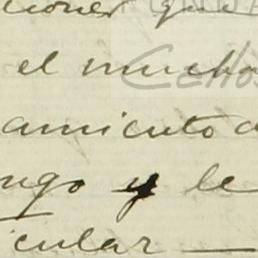 ciones que
el mucho
amiento d
ngo y le
icular —